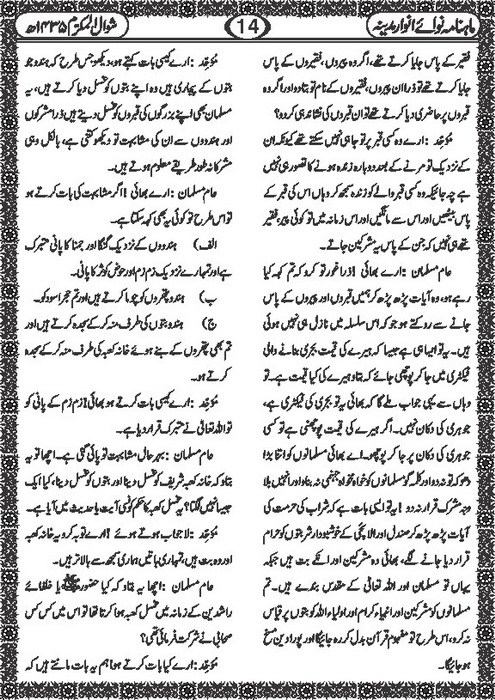 ماہنامہ نوائے انوار مدینہ
14
شوال المکرم ۱۴۳۵ھ
فقیر کے پاس جایا کرتے تھے، اگر وہ پیروں، فقیروں کے پاس
جایا کرتے تھے تو ذرا ان پیروں، فقیروں کے نام تو بتا دو اور اگر وہ
قبروں پر حاضری دیا کرتے تھے تو ان قبروں کی نشاندہی کردو؟
مؤحِّد : ارے وہ کسی قبر پر تو جا ہی نہیں سکتے تھے کیونکہ ان
کے نزدیک تو مرنے کے بعد دوبارہ زندہ ہونے کا تصور ہی نہیں
ہے چہ جائیکہ وہ کسی قبر والے کو زندہ سمجھ کر وہاں اس کی قبر کے
پاس بیٹھیں اور اس سے مانگیں اور اس زمانہ میں تو کوئی پیر، فقیر
تھے ہی نہیں کہ جن کے پاس یہ مشرکین جاتے۔
عام مسلمان : ارے بھائی! ذرا غور تو کرو کہ تم کہہ کیا
رہے ہو، وہ آیات پڑھ پڑھ کر ہمیں قبروں اور پیروں کے پاس
جانے سے روکتے ہو جو کہ اس سلسلہ میں نازل ہی نہیں ہوئی
ہیں۔ یہ تو ایسا ہی ہے جیسا کہ ہیرے کی قیمت بجری بنانے والی
فیکٹری میں جا کر پوچھی جائے کہ بتاؤ ہیرے کی کیا قیمت ہے۔ تو
وہاں سے یہی جواب ملے گا کہ بھائی یہ تو بجری کی فیکٹری ہے،
جوہری کی دکان نہیں ہے۔ اگر ہیرے کی قیمت پوچھنی ہے تو کسی
جوہری کی دکان پر جا کر پوچھو۔ اے بھائی مسلمانوں کو اتنا بڑا
دھوکہ تو نہ دو اور کلمہ گو مسلمانوں کو خواہ مخواہ جہنمی نہ بناؤ اور انہیں بلا
وجہ مشرک قرار نہ دو! یہ تو ایسی بات ہے کہ شراب کی حرمت کی
آیات پڑھ پڑھ کر صندل اور الائچی کے خوشبودار شربتوں کو حرام
قرار دیا جانے لگے، بھائی وہ مشرکین اور انکے بت ہیں جبکہ
یہاں تو مسلمان اور اللہ تعالیٰ کے مقدس بندے ہیں۔ تم
مسلمانوں کو مشرکین اور انبیاء کرام اور اولیاء اللہ کو بتوں پر قیاس
نہ کرو، اس طرح تو مفہوم قرآن بدل کر رہ جائیگا اور پورا دین مسخ
ہو جائیگا۔
مؤحِّد : ارے کیسی بات کہتے ہو، دیکھو جس طرح کہ ہندو جو
بتوں کے پجاری ہیں وہ اپنے بتوں کو غسل دیا کرتے ہیں، یہ
مسلمان بھی اپنے بزرگوں کی قبروں کو غسل دیتے ہیں ذرا مشرکوں
اور ہندوؤں سے ان کی مشابہت تو دیکھو کتنی ہے، بالکل وہی
مشرکانہ طور طریقے معلوم ہوتے ہیں۔
عام مسلمان : ارے بھائی! اگر مشابہت کی بات کرتے ہو
تو اس طرح تو کوئی یہ بھی کہہ سکتا ہے۔
الف) ہندوؤں کے نزدیک گنگا اور جمنا کا پانی متبرک
ہے اور تمہارے نزدیک زم زم اور حوض کوثر کا پانی۔
ب) ہندو پتھروں کو چوما کرتے ہیں اور تم حجر اسود کو۔
ج) ہندو بتوں کی طرف منہ کر کے سجدہ کرتے ہیں اور
تم بھی پتھروں کے بنے ہوئے خانہ کعبہ کی طرف منہ کر کے سجدہ
کرتے ہو۔
مؤحِّد : ارے کیسی بات کرتے ہو بھائی! زم زم کے پانی کو
تو اللہ تعالیٰ نے متبرک قرار دیا ہے۔
عام مسلمان : بہر حال مشابہت تو پائی گئی ہے۔ اچھا تو یہ
بتاؤ کہ خانہ کعبہ شریف کو غسل دینا اور بتوں کو غسل دینا، کیا ایک
جیسا نہیں لگتا؟ یہ غسل کعبہ کا حکم کونسی آیت یا حدیث میں آیا ہے۔
مؤحِّد : لا جواب ہوتے ہوئے! ارے توبہ کرو یہ خانہ کعبہ
اور وہ بت ہیں، تمہاری باتیں ہماری سمجھ سے بالاتر ہیں۔
عام مسلمان : اچھا یہ بتاؤ کہ کیا حضور ﷺ یا خلفائے
راشدین کے زمانہ میں غسل کعبہ ہوا کرتا تھا تو اس میں کس کس
صحابی نے شرکت فرمائی تھی؟
مؤحِّد : ارے کیا بات کرتے ہو! ہم یہ بات مانتے ہیں کہ